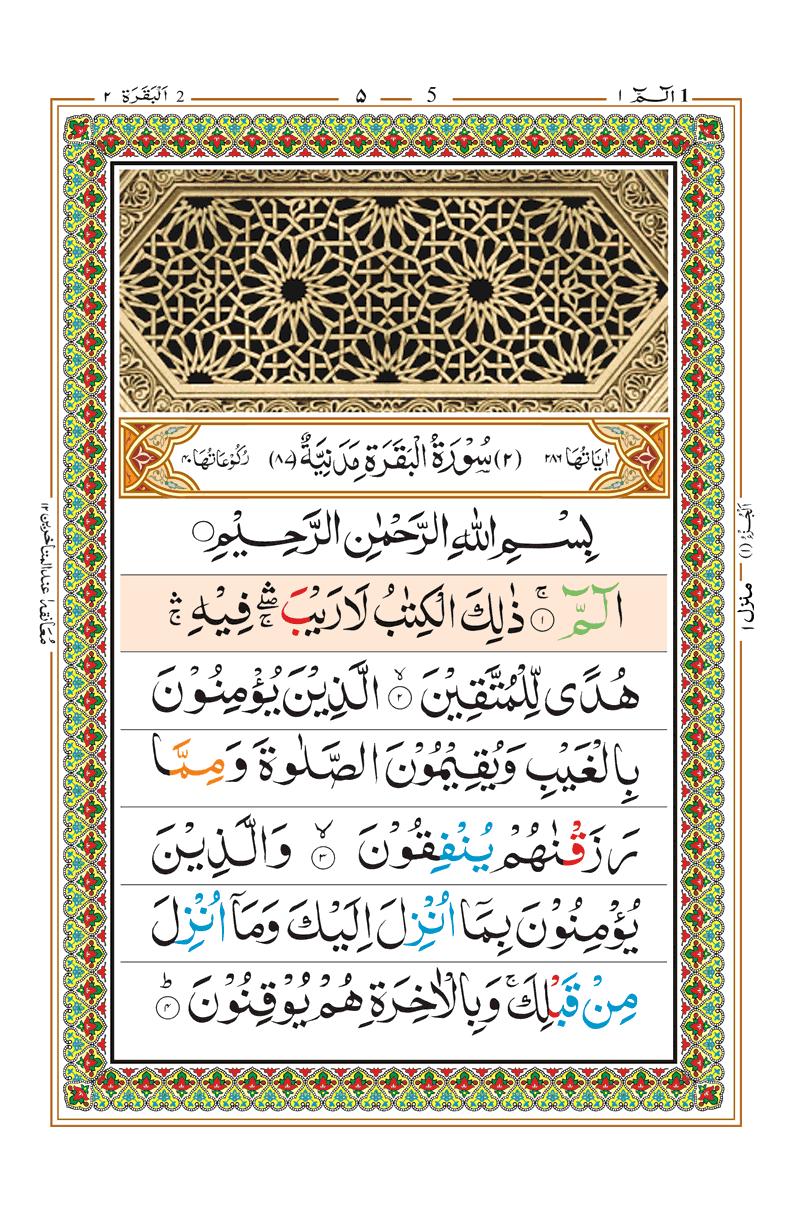 1 الٓـمّٓ ۱ 5 ۵ 2 اَلْبَقَرَة ۲
اٰيَاتُهَا ۲۸۶ (۲) سُوْرَةُ الْبَقَرَةِ مَدَنِيَّةٌ (۸۷) رُكُوْعَاتُهَا ۴۰
بِسْمِ اللهِ الرَّحْمٰنِ الرَّحِيْمِ ○
الٓـمّٓ ۚ ﴿۱﴾ ذٰلِكَ الْكِتٰبُ لَا رَيْبَ ۛۖۚ فِيْهِ ۛۚ
هُدًى لِّلْمُتَّقِيْنَ ۙ ﴿۲﴾ الَّذِيْنَ يُؤْمِنُوْنَ
بِالْغَيْبِ وَيُقِيْمُوْنَ الصَّلٰوةَ وَمِمَّا
رَزَقْنٰهُمْ يُنْفِقُوْنَ ۙ ﴿۳﴾ وَالَّذِيْنَ
يُؤْمِنُوْنَ بِمَآ اُنْزِلَ اِلَيْكَ وَمَآ اُنْزِلَ
مِنْ قَبْلِكَ ۚ وَبِالْاٰخِرَةِ هُمْ يُوْقِنُوْنَ ؕ ﴿۴﴾
اَلْجُزْءُ (۱) منزل ۱
معانقه ۱ عند المتاخرين ۱۲